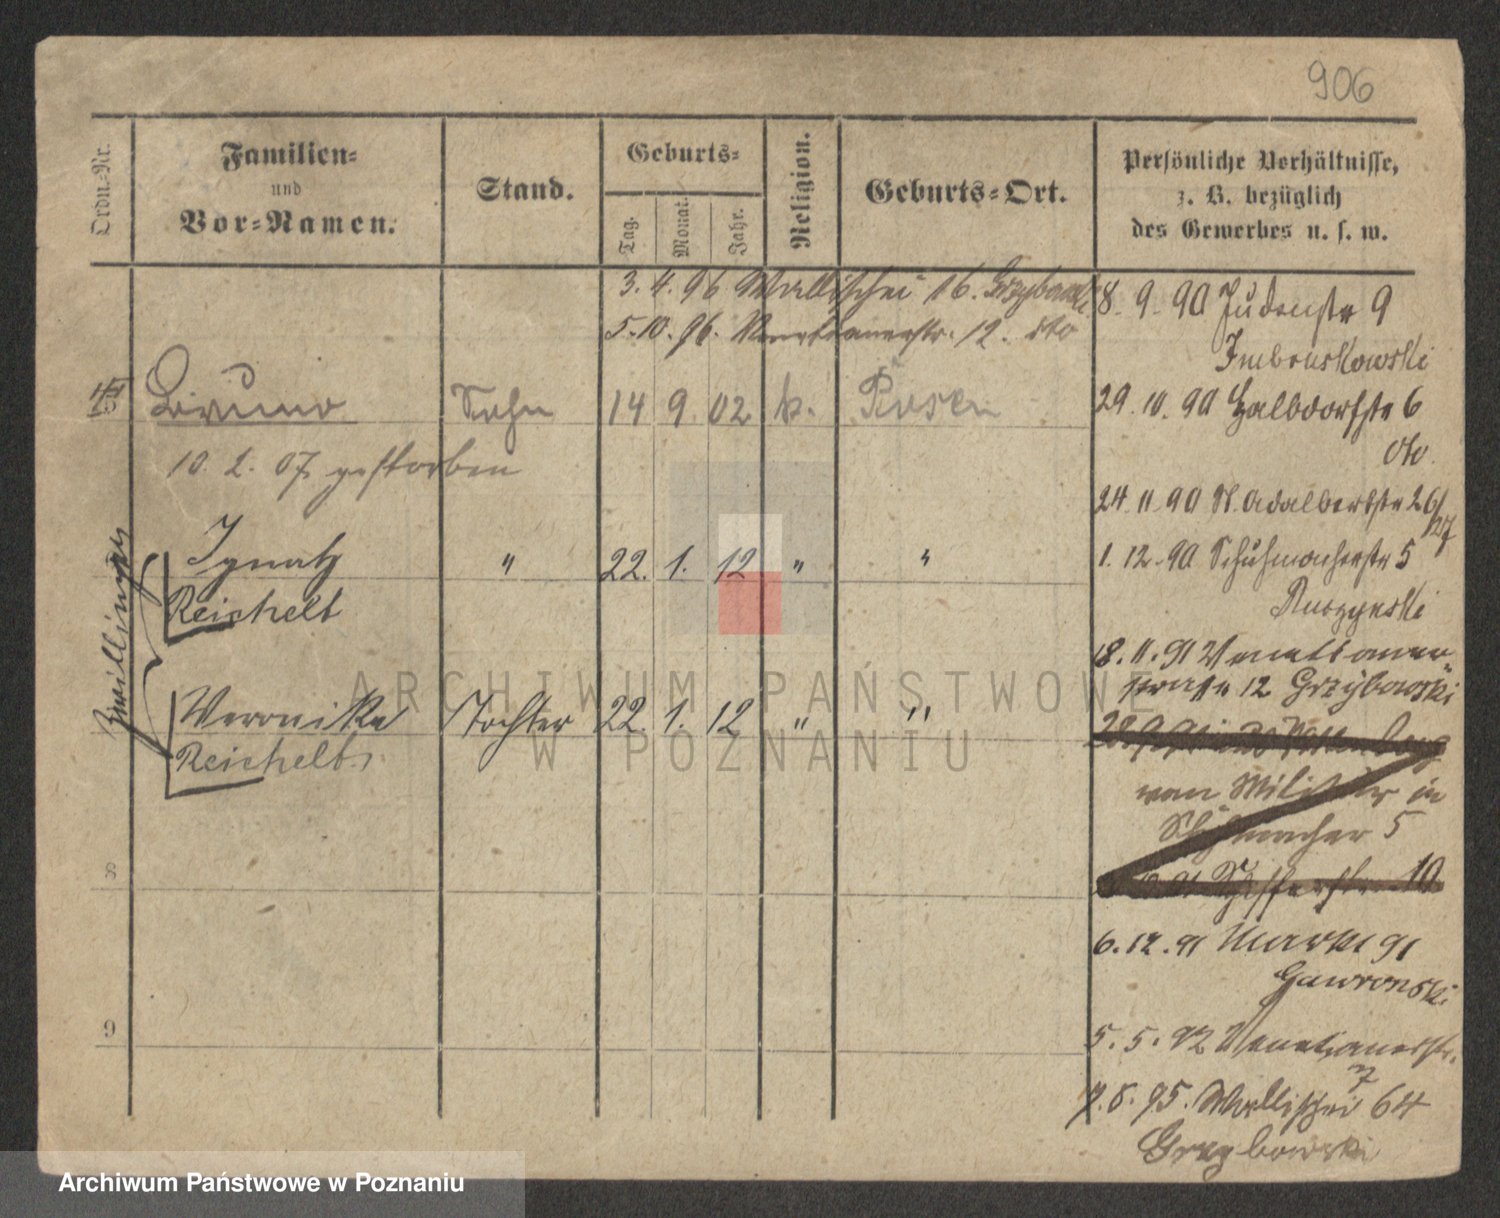 906
Ordn.-Nr.
Familien-
und
Vor-Namen.
Stand.
Geburts-
Tag.
Monat.
Jahr.
Religion.
Geburts-Ort.
Persönliche Verhältnisse,
z. B. bezüglich
des Gewerbes u. s. w.
3. 4. 96 Wallischei 16. Grzybowski
5. 10. 96. Venetianerstr. 12. dto
Bruno Sohn 14 9 02 k. Posen
10. 2. 07 gestorben
Zwillinge
Ignatz " 22. 1. 12 " "
Reichelt
Veronika Tochter 22. 1. 12 " "
Reichelt
8
9
8. 9. 90 Judenstr 9
29. 10. 90 Halbdorfstr 6
dto.
24. 11. 90 St. Adalbertstr 26/27
1. 12. 90 Schuhmacherstr 5
Ruszynski
18. 11. 91 Venetianer-
strasse 12 Grzybowski
vom Militär in
Schuhmacher 5
Schifferstr. 10
6. 12. 91 Markt 91
Gawronski
5. 5. 92 Venetianerstr.
7
7. 8. 95. Wallischei 64
Grzybowski
ARCHIWUM PAŃSTWOWE
W POZNANIU
Archiwum Państwowe w Poznaniu